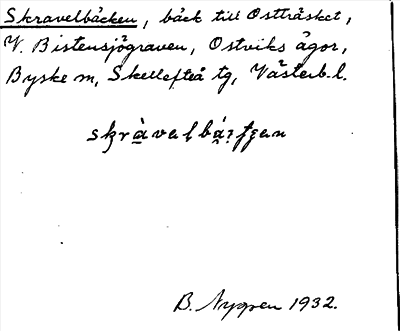 Skravelbäcken, bäck till Ostträsket,
V. Bistensjögraven, Ostviks ägor,
Byske m, Skellefteå tg, Västerb. l.
B. Nygren 1932.